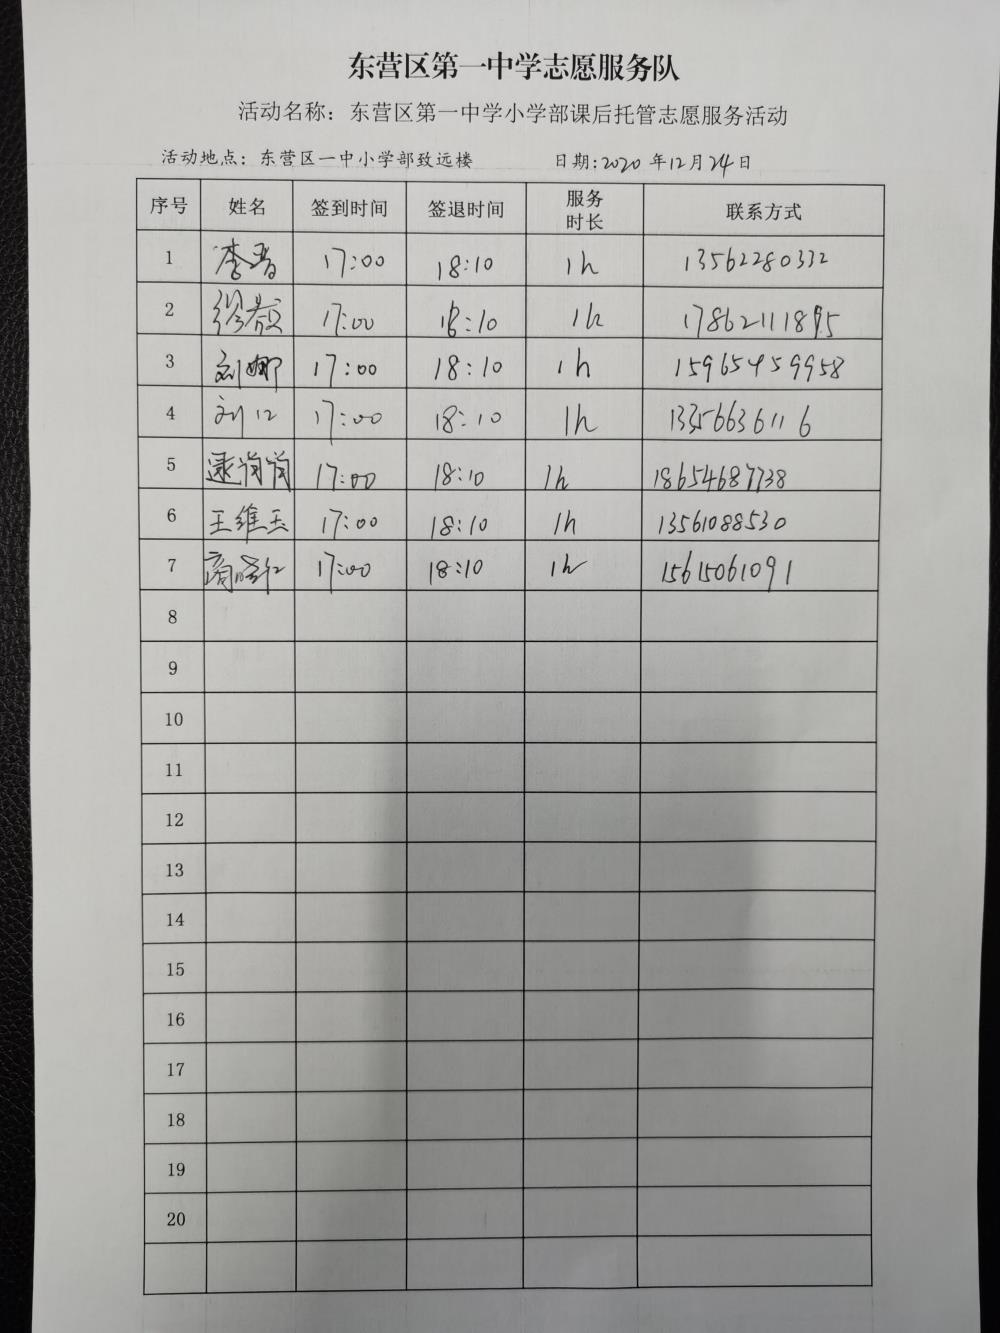 东营区第一中学志愿服务队
活动名称：东营区第一中学小学部课后托管志愿服务活动
活动地点：东营区一中小学部致远楼 日期:2020 年12月24日
序号 姓名 签到时间 签退时间 服务时长 联系方式
1 李晋 17:00 18:10 1h 13562280332
2 徐 17:00 18:10 1h 17862111895
3 刘娜 17:00 18:10 1h 15965459958
4 刘江 17:00 18:10 1h 13356636116
5 17:00 18:10 1h 18654687738
6 王维玉 17:00 18:10 1h 13561088530
7 商 17:00 18:10 1h 15615061091
8
9
10
11
12
13
14
15
16
17
18
19
20